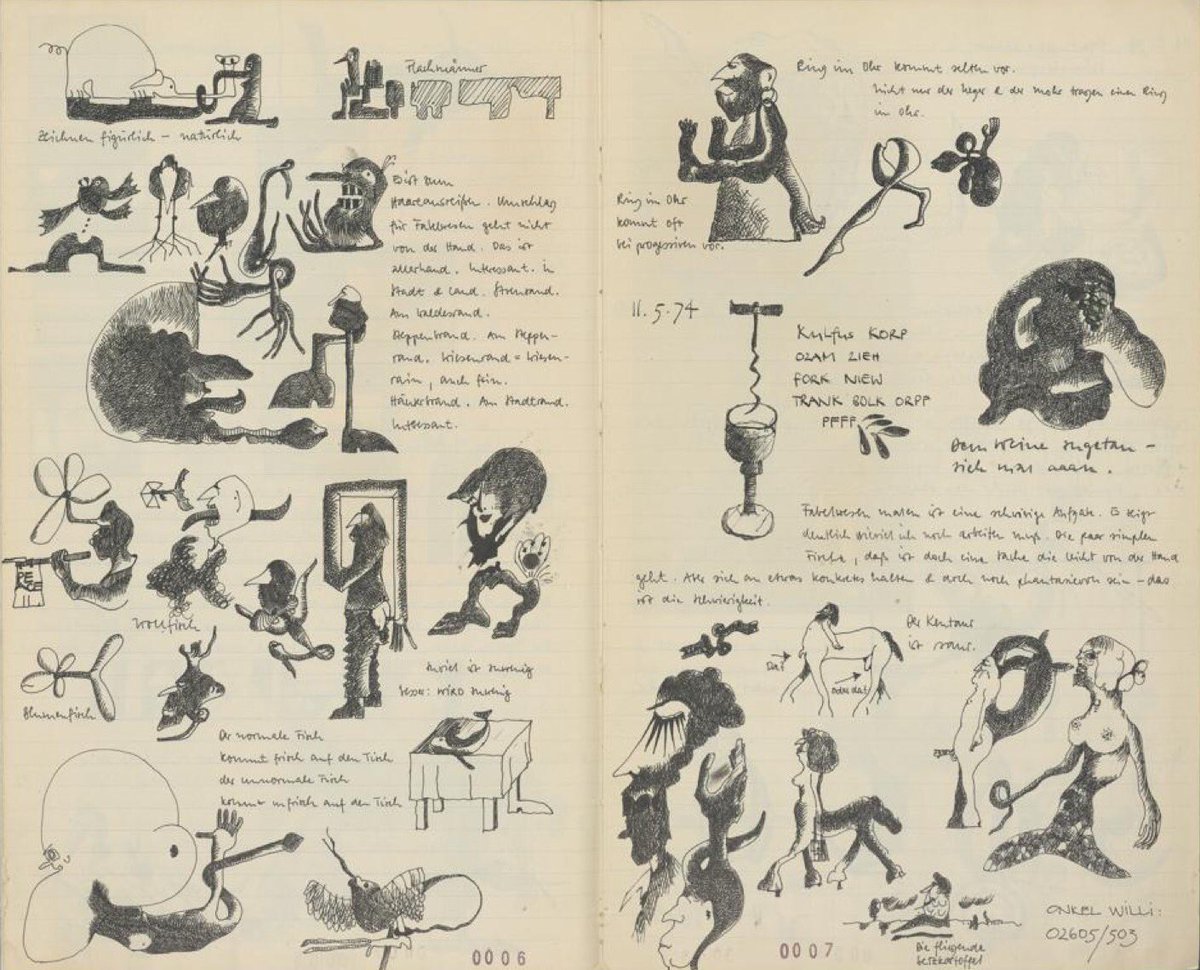 Flachmänner
Zeichnen figürlich – natürlich
Es ist zum
Haareausreißen. Umschlag
für Fabelwesen geht nicht
von der Hand. Das ist
allerhand. Interessant. in
Stadt & Land.
Am Waldesrand.
Steppenbrand. Am Steppen-
rand. Wiesenrand = Wiesen-
rain, auch fein.
Häuserbrand. Am Stadtrand.
Interessant.
Wollfisch
Blumenfisch
zuviel ist zuwenig
besser: WIRD zuwenig
Der normale Fisch
kommt frisch auf den Tisch
der unnormale Fisch
kommt unfrisch auf den Tisch
0006
Ring im Ohr kommt selten vor.
nicht nur der Neger & der Mohr tragen einen Ring
im Ohr.
Ring im Ohr
kommt oft
bei progressiven vor.
11.5.74
KULFUS KORP
OZAM ZIEH
FORK NIEW
TRANK BOLK ORPF
PFFF
Dem Weine zugetan –
sieh mas aaan.
Fabelwesen malen ist eine schwierige Aufgabe. Es zeigt
deutlich wieviel ich noch arbeiten muß. Die paar simplen
Fische, daß ist doch eine Sache die leicht von der Hand
geht. Aber sich an etwas konkretes halten & doch noch phantasievoll sein – das
ist die Schwierigkeit.
Der Kentaur
ist sauer.
dat
oder dat
Die fliegende
Setzkartoffel
ONKEL WILLI:
02605/503
0007